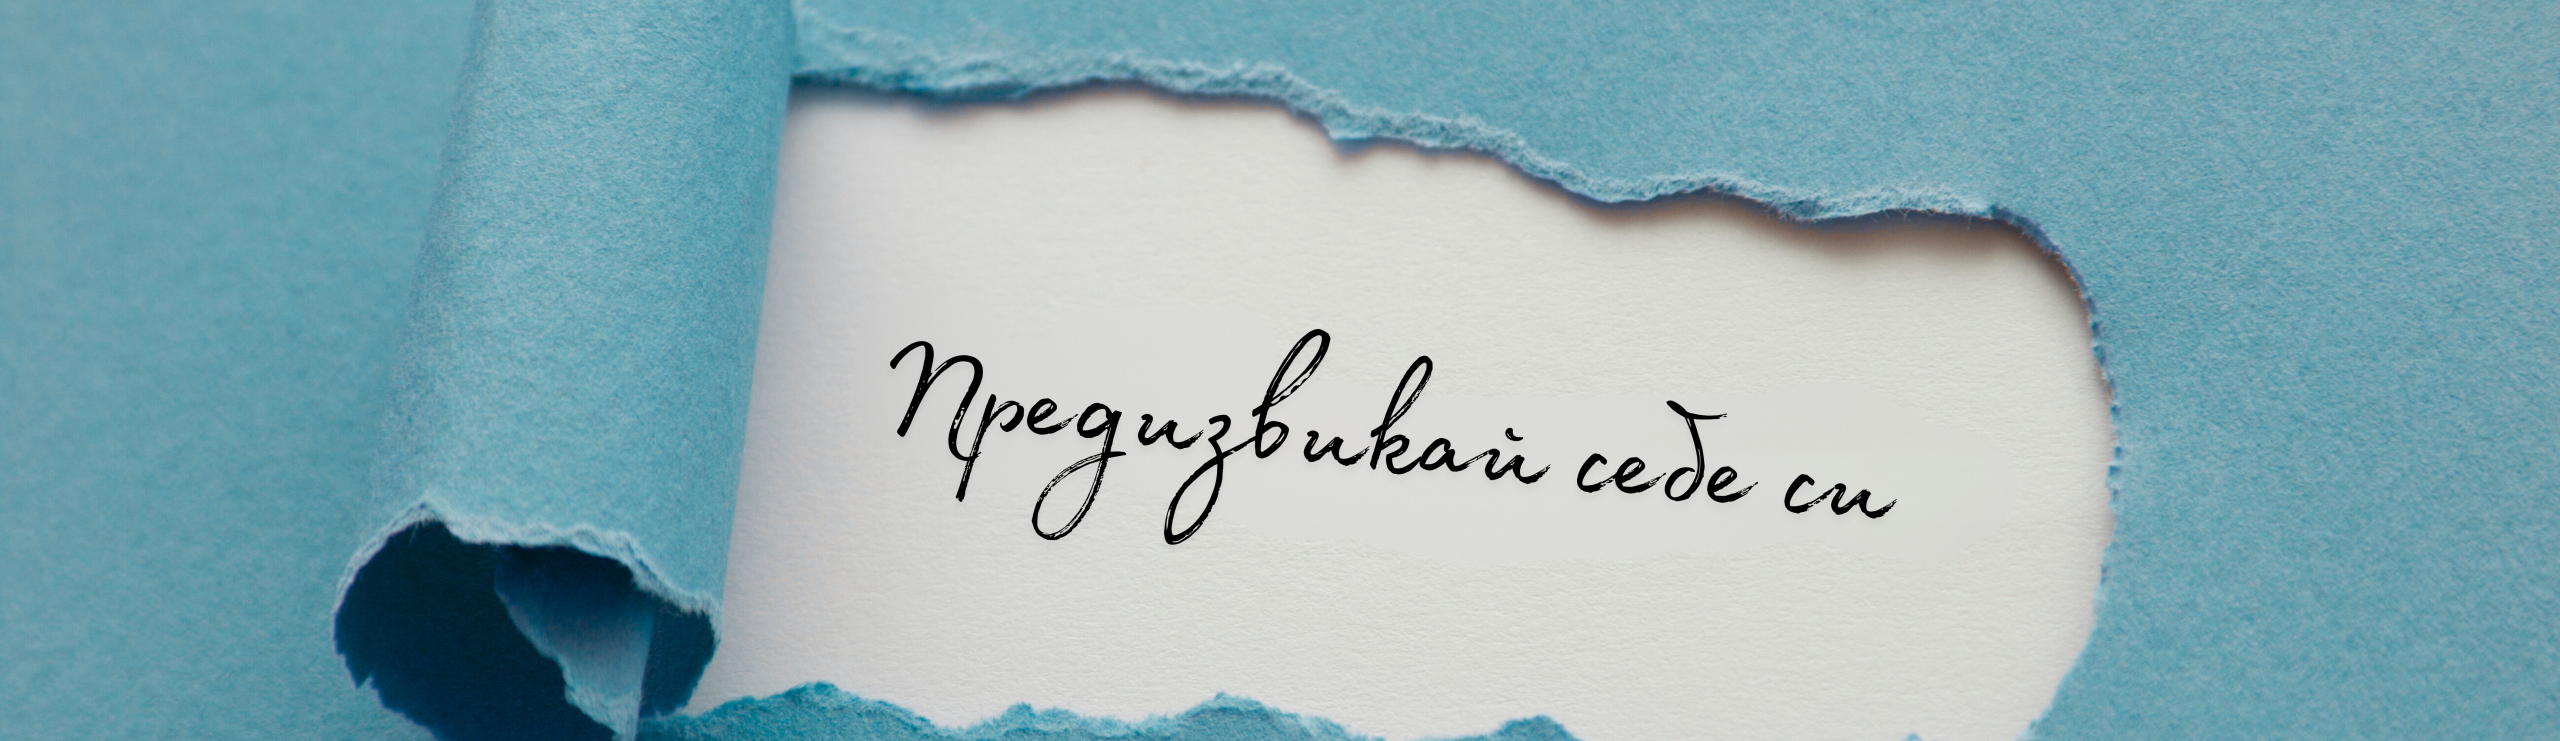 Предизвикай себе си